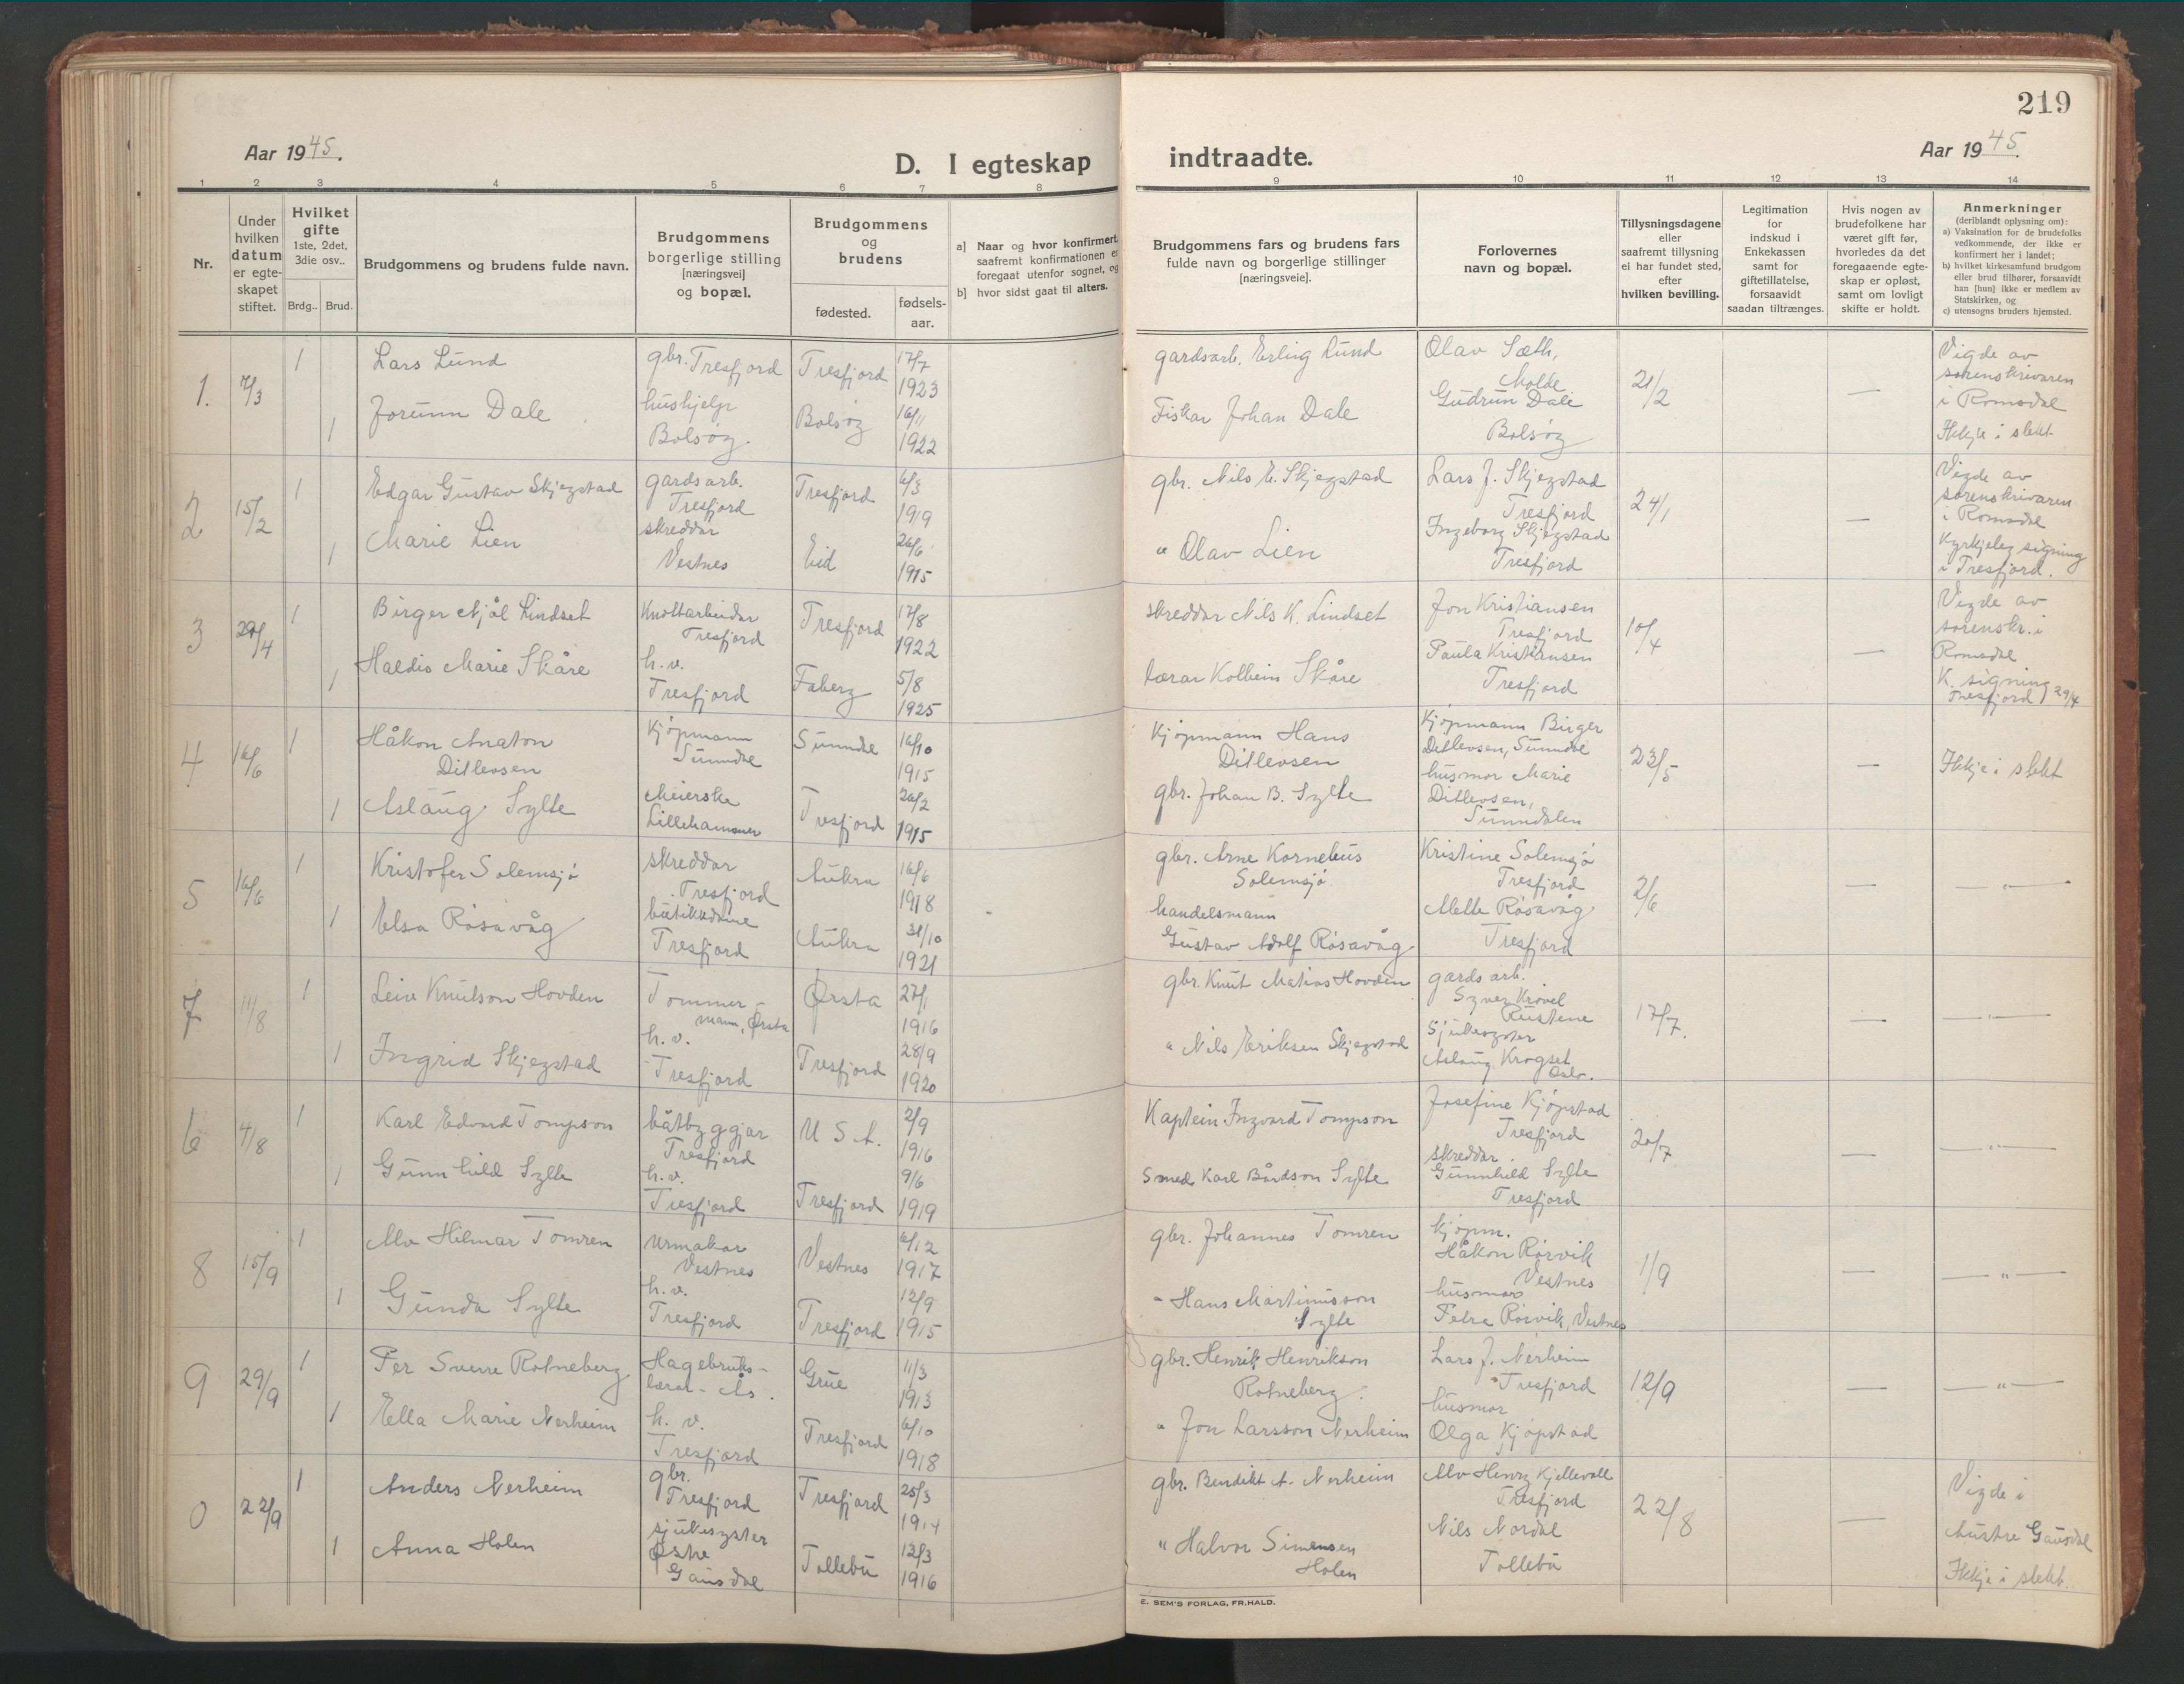 219
Aar 1945.
D. I egteskap indtraadte.
Aar 1945.
1 2 3 4 5 6 7 8 9 10 11 12 13 14
Nr.
Under hvilken datum er egte-skapet stiftet.
Hvilket gifte
1ste, 2det, 3die osv..
Brdg.. Brud.
Brudgommens og brudens fulde navn.
Brudgommens borgerlige stilling [næringsvei] og bopæl.
Brudgommens og brudens
fødested.
fødsels-aar.
a] Naar og hvor konfirmert, saafremt konfirmationen er foregaat utenfor sognet, og
b] hvor sidst gaat til alters.
Brudgommens fars og brudens fars fulde navn og borgerlige stillinger [næringsveie].
Forlovernes navn og bopæl.
Tillysningsdagene eller saafremt tillysning ei har fundet sted, efter hvilken bevilling.
Legitimation for indskud i Enkekassen samt for giftetillatelse, forsaavidt saadan tiltrænges.
Hvis nogen av brudefolkene har været gift før, hvorledes da det foregaaende egte-skap er opløst, samt om lovligt skifte er holdt.
Anmerkninger
(deriblandt oplysning om):
a) Vaksination for de brudefolks vedkommende, der ikke er konfirmert her i landet;
b) hvilket kirkesamfund brudgom eller brud tilhører, forsaavidt han [hun] ikke er medlem av Statskirken, og
c) utensogns bruders hjemsted.
1. 7/3 1 Lars Lund gbr. Tresfjord Tresfjord 17/7 1923 gardsarb. Erling Lund Olav Sæth, Molde 21/2 — Vigde av sorenskrivaren i Romsdal
1 Jorunn Dale hushjelp Bolsøy. Bolsøy 16/11 1922 Fiskar Johan Dale Gudrun Dale Bolsøy Ikkje i slekt
2 15/2 1 Edgar Gustav Skjegstad gardsarb. Tresfjord Tresfjord 6/3 1919 gbr. Nils E. Skjegstad Lars J. Skjegstad Tresfjord 24/1 — Vigde av sorenskrivaren i Romsdal
1 Marie Lien skreddar Vestnes Eid 26/6 1915 " Olav Lien Ingeborg Skjegstad Tresfjord Kyrkjeleg signing i Tresfjord.
3 29/4 1 Birger Njål Lindset Knottarbeidar Tresfjord Tresfjord 17/8 1922 skreddar Nils K. Lindset Jon Kristiansen Tresfjord 10/4 — Vigde av sorenskr. i Romsdal
1 Haldis Marie Skåre h.v. Tresfjord Faberg 5/8 1925 lærar Kolbein Skåre Paula Kristiansen Tresfjord K. signing Tresfjord 29/4
4 16/6 1 Håkon Anaton Ditlevsen Kjøpmann Sunndal Sunndal 16/10 1915 Kjøpmann Hans Ditlevsen Kjøpmann Birger Ditlevsen, Sunndal 23/5 — Ikkje i slekt
1 Aslaug Sylte Meierske Lillehammer Tresfjord 26/2 1915 gbr. Johan B. Sylte husmor Marie Ditlevsen, Sunndalen
5 16/6 1 Kristofer Solemsjø skreddar Tresfjord Aukra 16/6 1918 gbr. Arne Kornelius Solemsjø Kristine Solemsjø Tresfjord 2/6 — — " —
1 Elsa Røsavåg butikkdame Tresfjord Aukra 31/10 1921 handelsmann Gustav Adolf Røsavåg Mette Røsavåg Tresfjord
7 11/8 1 Leiv Knutson Hovden Tommer-mann, Ørsta Ørsta 27/1 1916 gbr. Knut Matias Hovden gardsarb. Syver Krøvel Rustene 17/7. — — " —
1 Ingrid Skjegstad h.v. Tresfjord Tresfjord 28/9 1920 " Nils Eriksen Skjegstad Sjukesyster Aslaug Krogset Oslo.
6 4/8 1 Karl Edvard Tompson båtbyggjar Tresfjord U S A. 2/9 1916 Kaptein Ingvard Tompson Josefine Kjøpstad Tresfjord 20/7 — — " —
1 Gunnhild Sylte h.v. Tresfjord Tresfjord 9/6 1919 Smed Karl Bårdson Sylte skreddar Gunnhild Sylte Tresfjord
8 15/9 1 Alv Hilmar Tomren Urmakar Vestnes Vestnes 6/12 1917 gbr. Johannes Tomren kjøpm. Håkon Rørvik Vestnes 1/9 — — " —
1 Gunda Sylte h.v. Tresfjord Tresfjord 12/9 1915 " Hans Martinusson Sylte husmor Petra Rørvik, Vestnes
9 29/9 1 Per Sverre Rotneberg Hagebruks-lærar - Ås. Grue 11/3 1913 gbr. Henrik Henrikson Rotneberg. Lars J. Nerheim Tresfjord 12/9 — — " —
1 Ella Marie Nerheim h. v. Tresfjord Tresfjord 6/10 1918 " Jon Larsson Nerheim husmor Olga Kjøpstad
0 22/9 1 Anders Nerheim gbr. Tresfjord Tresfjord 25/3 1914 gbr. Bendikt A. Nerheim Alv Henry Kjellevoll Tresfjord 22/8 — Vigde i Austre Gausdal
1 Anna Holen sjukesyster Østre Gausdal Tollebu 12/3 1916 " Halvor Simensen Holen Nils Nordal Tollebu Ikkje i slekt.
E. SEM'S FORLAG, FR.HALD.